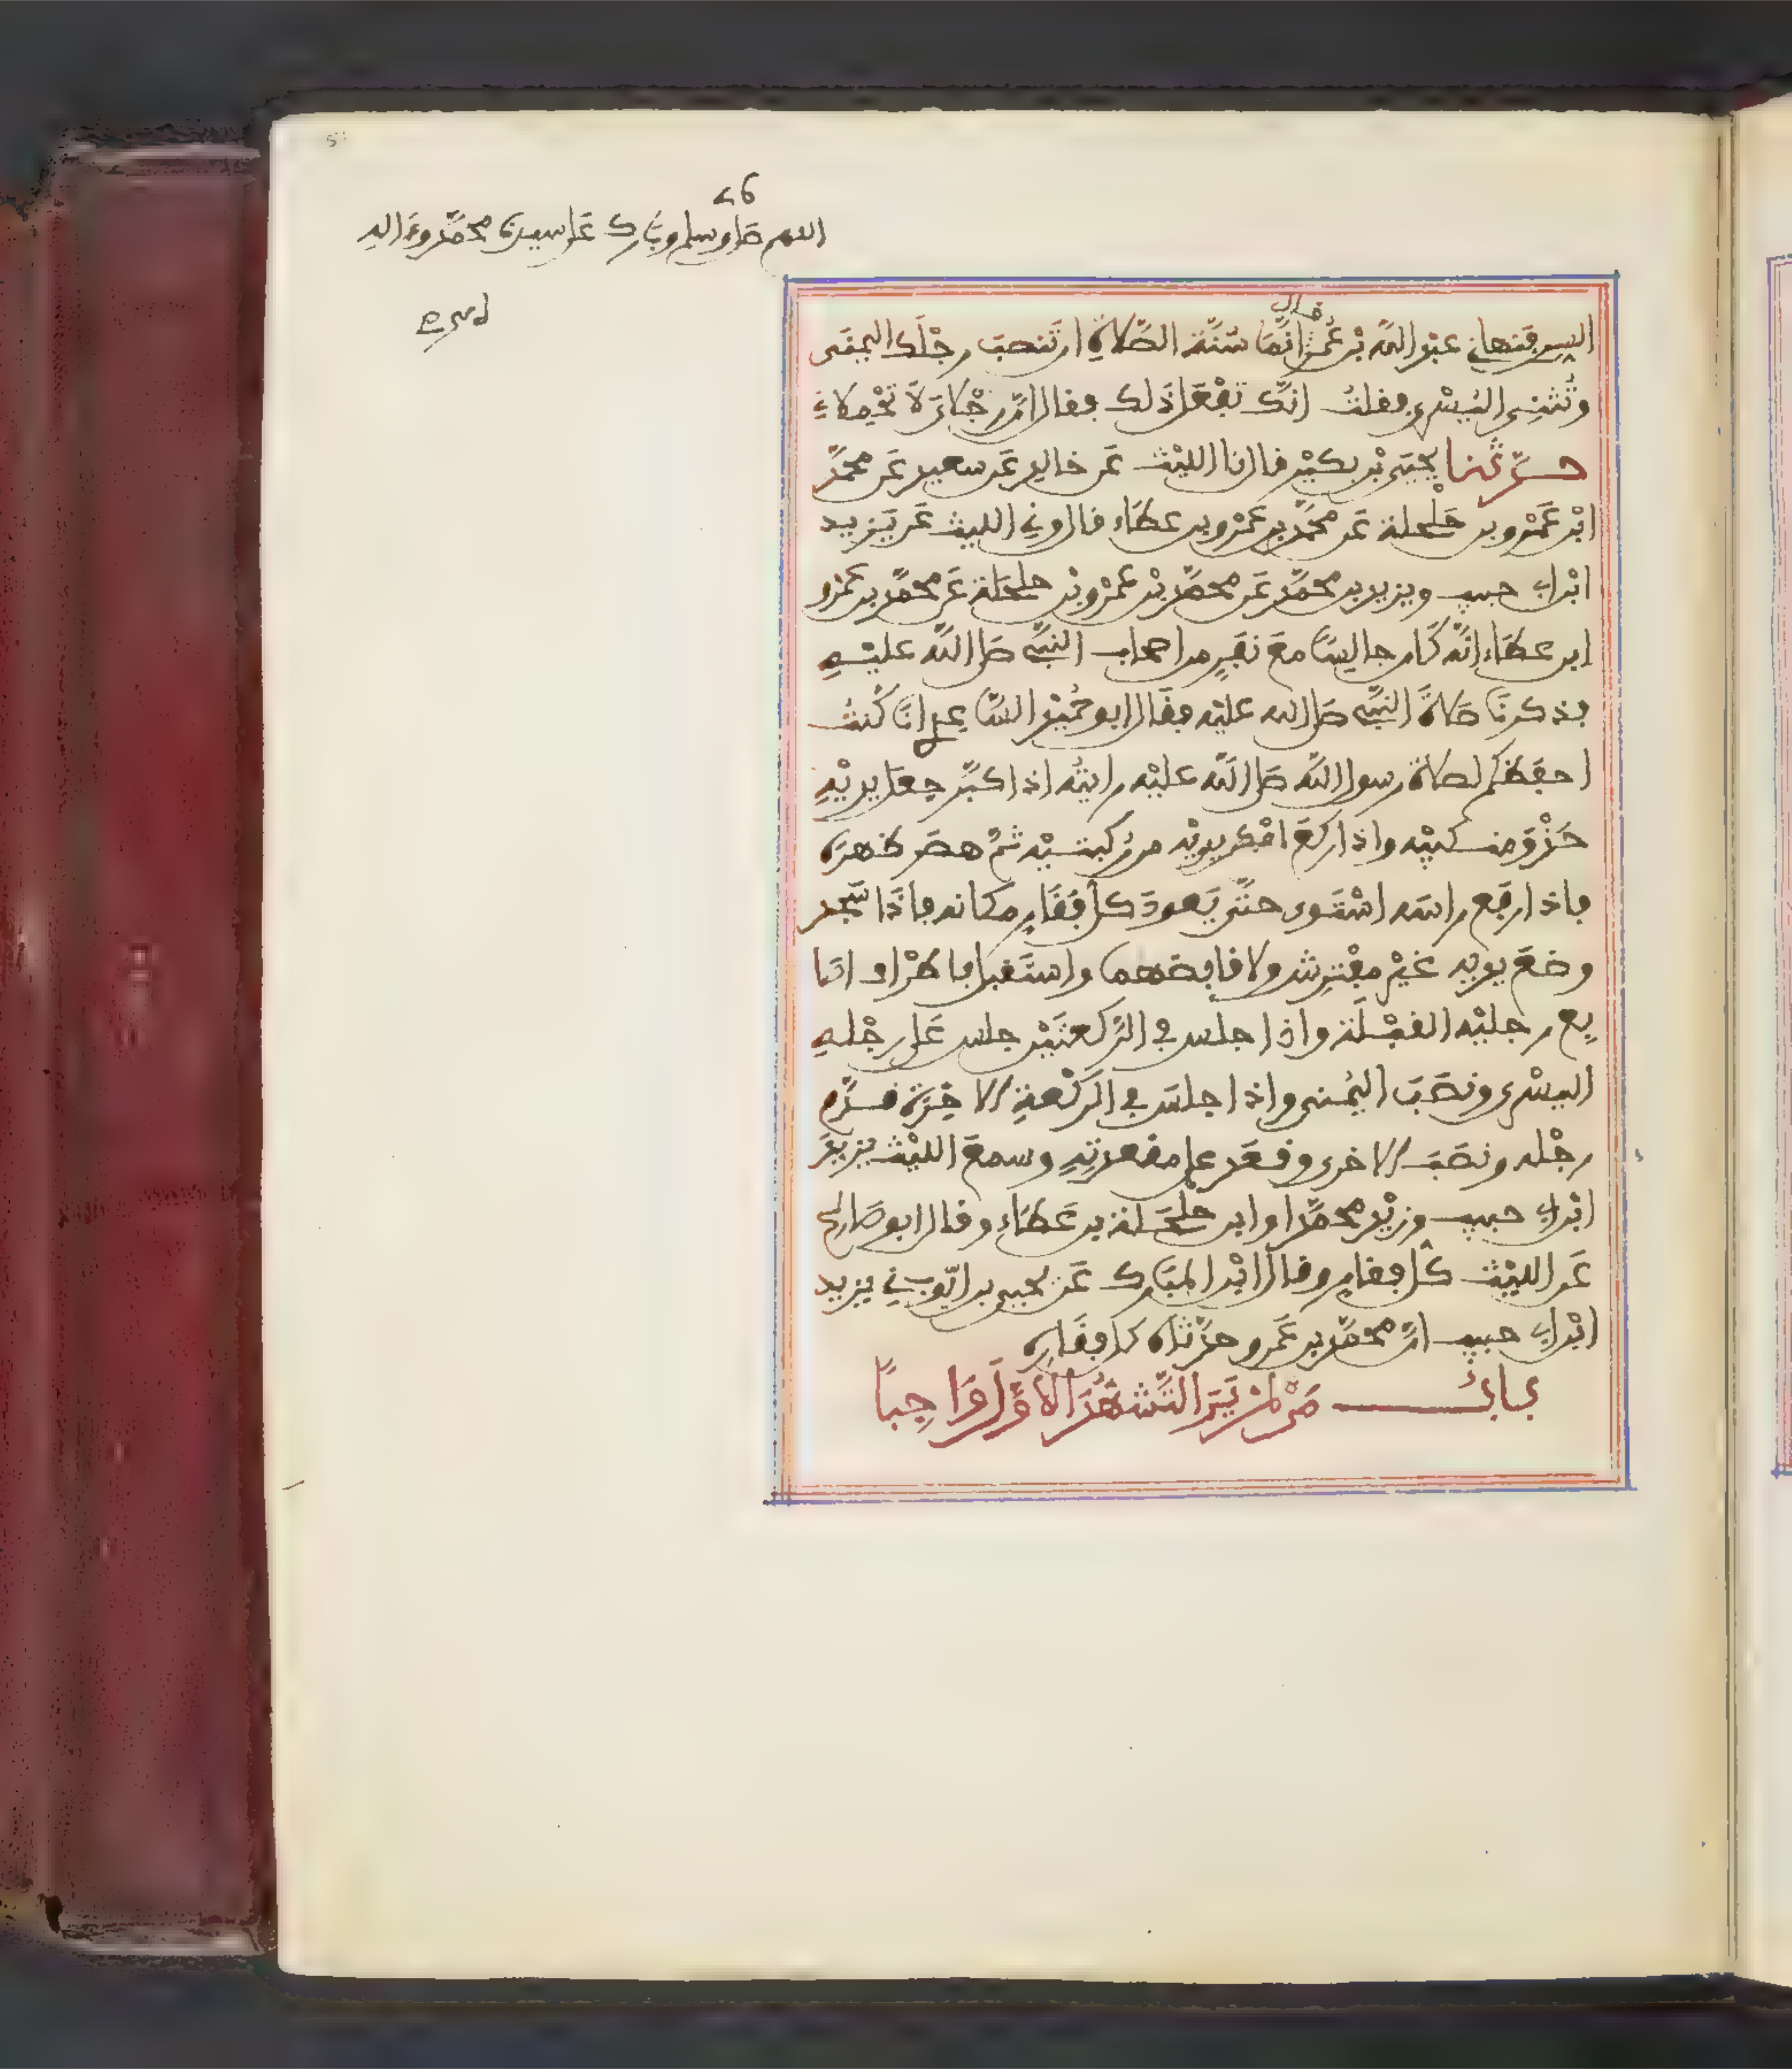 26
اللهم صل وسلم وبارك على سيدنا محمد وعلى اله
السن فنهاني عبد الله بن عمر قال انما سُنَّة الصَّلاةِ ان تنصب رجْلَك اليمنَى
وتُثْنِي اليُسْرى فقلتُ انَّك تفْعَل ذلك فقال انَّ رِجْلايَ لَا تحْمِلانِي
حدَّثنا يحيى بْن بكيْر قال نا الليْث عَن خالد عَن سعيد عَن محمَّد
ابْن عَمْرو بن حَلْحلة عَن محمَّد بن عَمْرو بن عطَاء قال وني الليث عَن يَزيد
ابْن ابي حبيب ويزيد بن محمَّد عَن محمَّد بْن عَمْرو بْن حلحَلة عَن محمَّد بن عَمْرو
ابن عطَاء انَّه كَان جالِسًا معَ نفَرٍ من اصحاب النبيِّ صلى اللَّه عليْهِ
فذكرنَا صَلاةَ النبيِّ صلى الله عليْه فقَال ابو حُميْد السَّاعِدي انَا كُنتُ
احفَظكُم لصلاة رسول اللَّه صَلى اللَّه عليْه رايتُه اذا كبَّر جعل يديْهِ
حَذْوَ منكبيْه واذا ركعَ امْكن يديْه من ركبتيْه ثمَّ هصَر ظهرَه
فاذا رفَع راسَه اسْتَوى حتَّى يَعودَ كل فَقَارٍ مكانه فاذَا سَجد
وضَعَ يديه غيْر مفْترِش ولا قابِضهما واستَقبل باطْراف اصا
بِع رجليْه القبْلَة واذا جلس في الرَّكعتَيْن جلس عَلى رجْلِهِ
اليسْرى ونصَبَ اليُمْنى واذا جلَس في الرَكْعةِ الاخِرَة قدَّم
رجْله ونصَبَ الاخرى وقعَد على مقعدتِهِ وسمعَ الليْث يزيدَ
ابْن ابي حبيب ويزيْد محمَّدا وابن حلحَلة بن عَطَاء وقال ابو صَالح
عَن الليْث كُل فقارٍ وقال ابْن المبَارك عَن يحيى بن ايّوب ني يزيد
ابْن ابي حبيب انَّ محمَّد بن عَمرو حدَّثهُ كل فقَارٍ
بابُ مَنْ لمْ يَرَ التَّشهُّدَ الأوَّلَ وَاجِباً